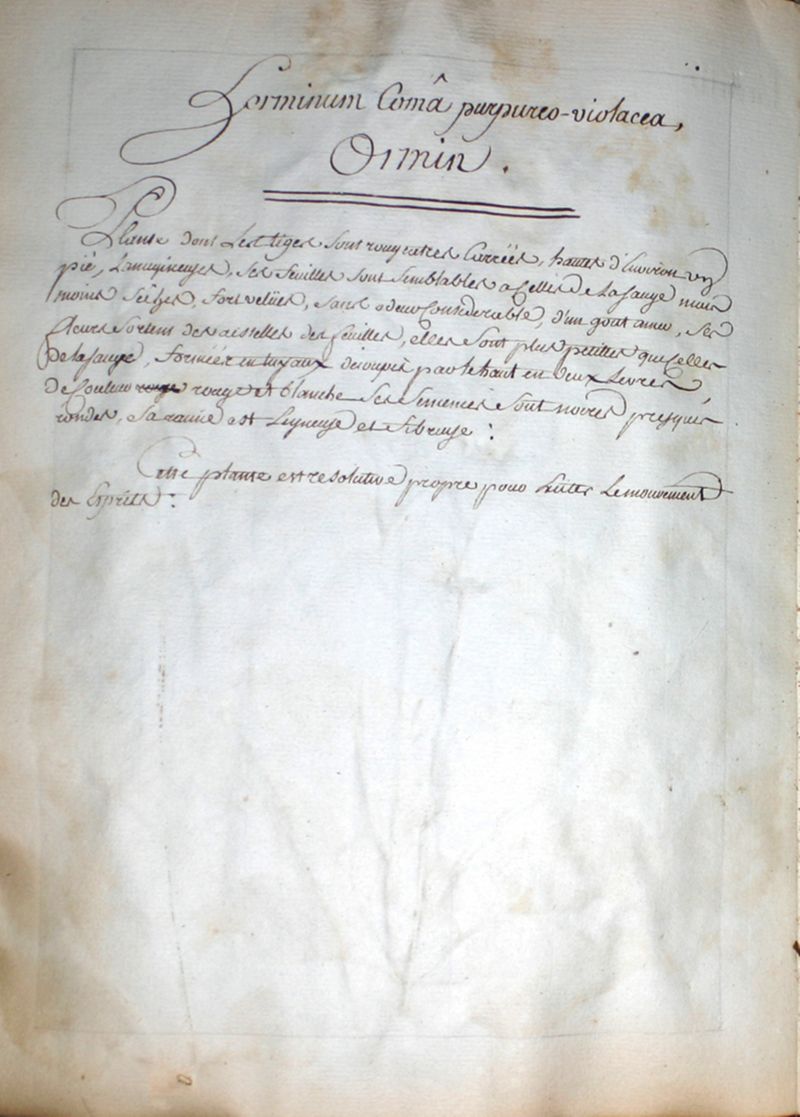 horminum Comâ purpureo-violacea,
Ormin.
Plante dont Les tiges sont rougeatres Carrées, hautes d'Environ un
pié, Lanugineuses, Ses feuilles sont semblables a Celles de La sauge mais
moins Séches, fort velües, sans odeur Considerable, d'un gout amer, Ses
fleurs Sortent des aisselles des feuilles, elles sont plus petites que Celles
de La sauge, formées en tuyaux decoupés par le haut en deux Levres,
de Couleur rouge et blanche Ses Semences sont noires presques
rondes, Sa racine est Ligneuse et fibreuse :
Cette plante est resolutive propre pour Le mouvement
des Esprits :